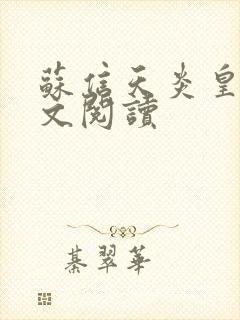 蘇信天炎皇
文閱讀
綦翠華